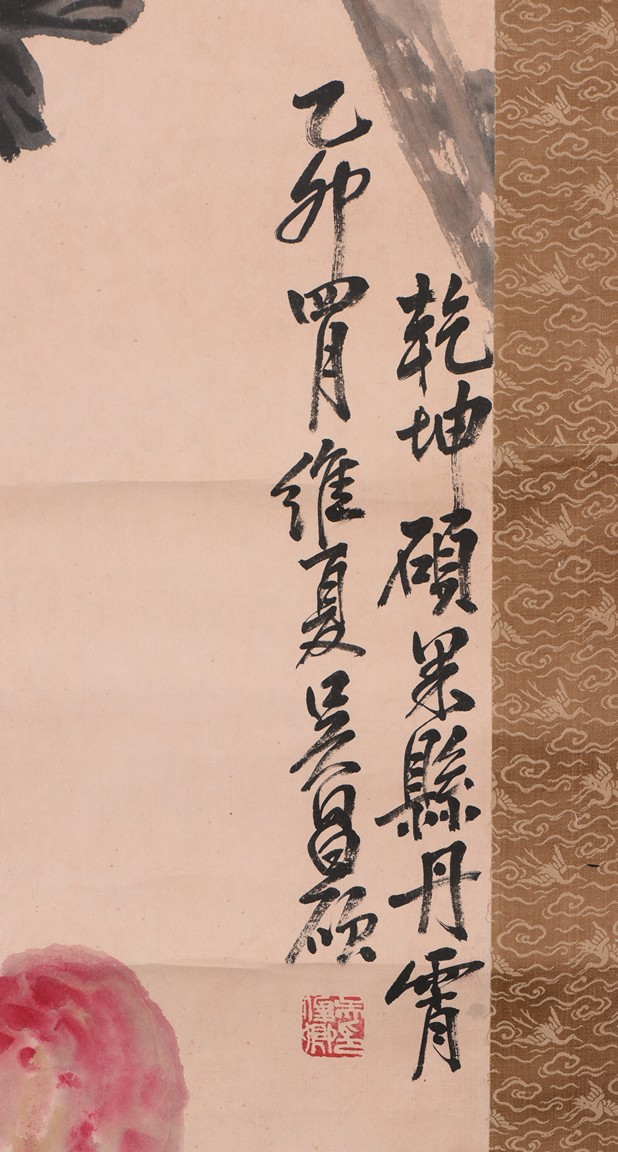 乾坤碩果縣丹霄
乙卯四月維夏吳昌碩